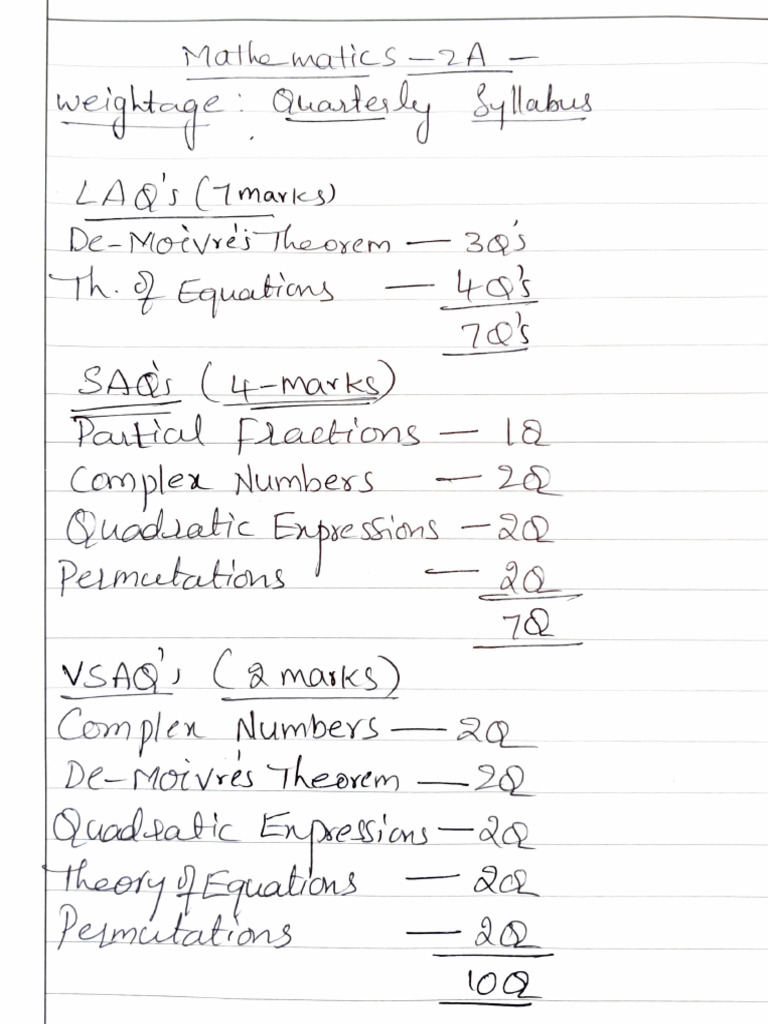 Mathematics - 2A -
Weightage: Quarterly Syllabus
LAQ's (7 marks)
De-Moivre's Theorem — 3Q's
Th. of Equations — 4Q's
7Q's
SAQ's (4-marks)
Partial Fractions — 1Q
Complex Numbers — 2Q
Quadratic Expressions — 2Q
Permutations — 2Q
7Q
VSAQ's (2 marks)
Complex Numbers — 2Q
De-Moivre's Theorem — 2Q
Quadratic Expressions — 2Q
Theory of Equations — 2Q
Permutations — 2Q
10Q